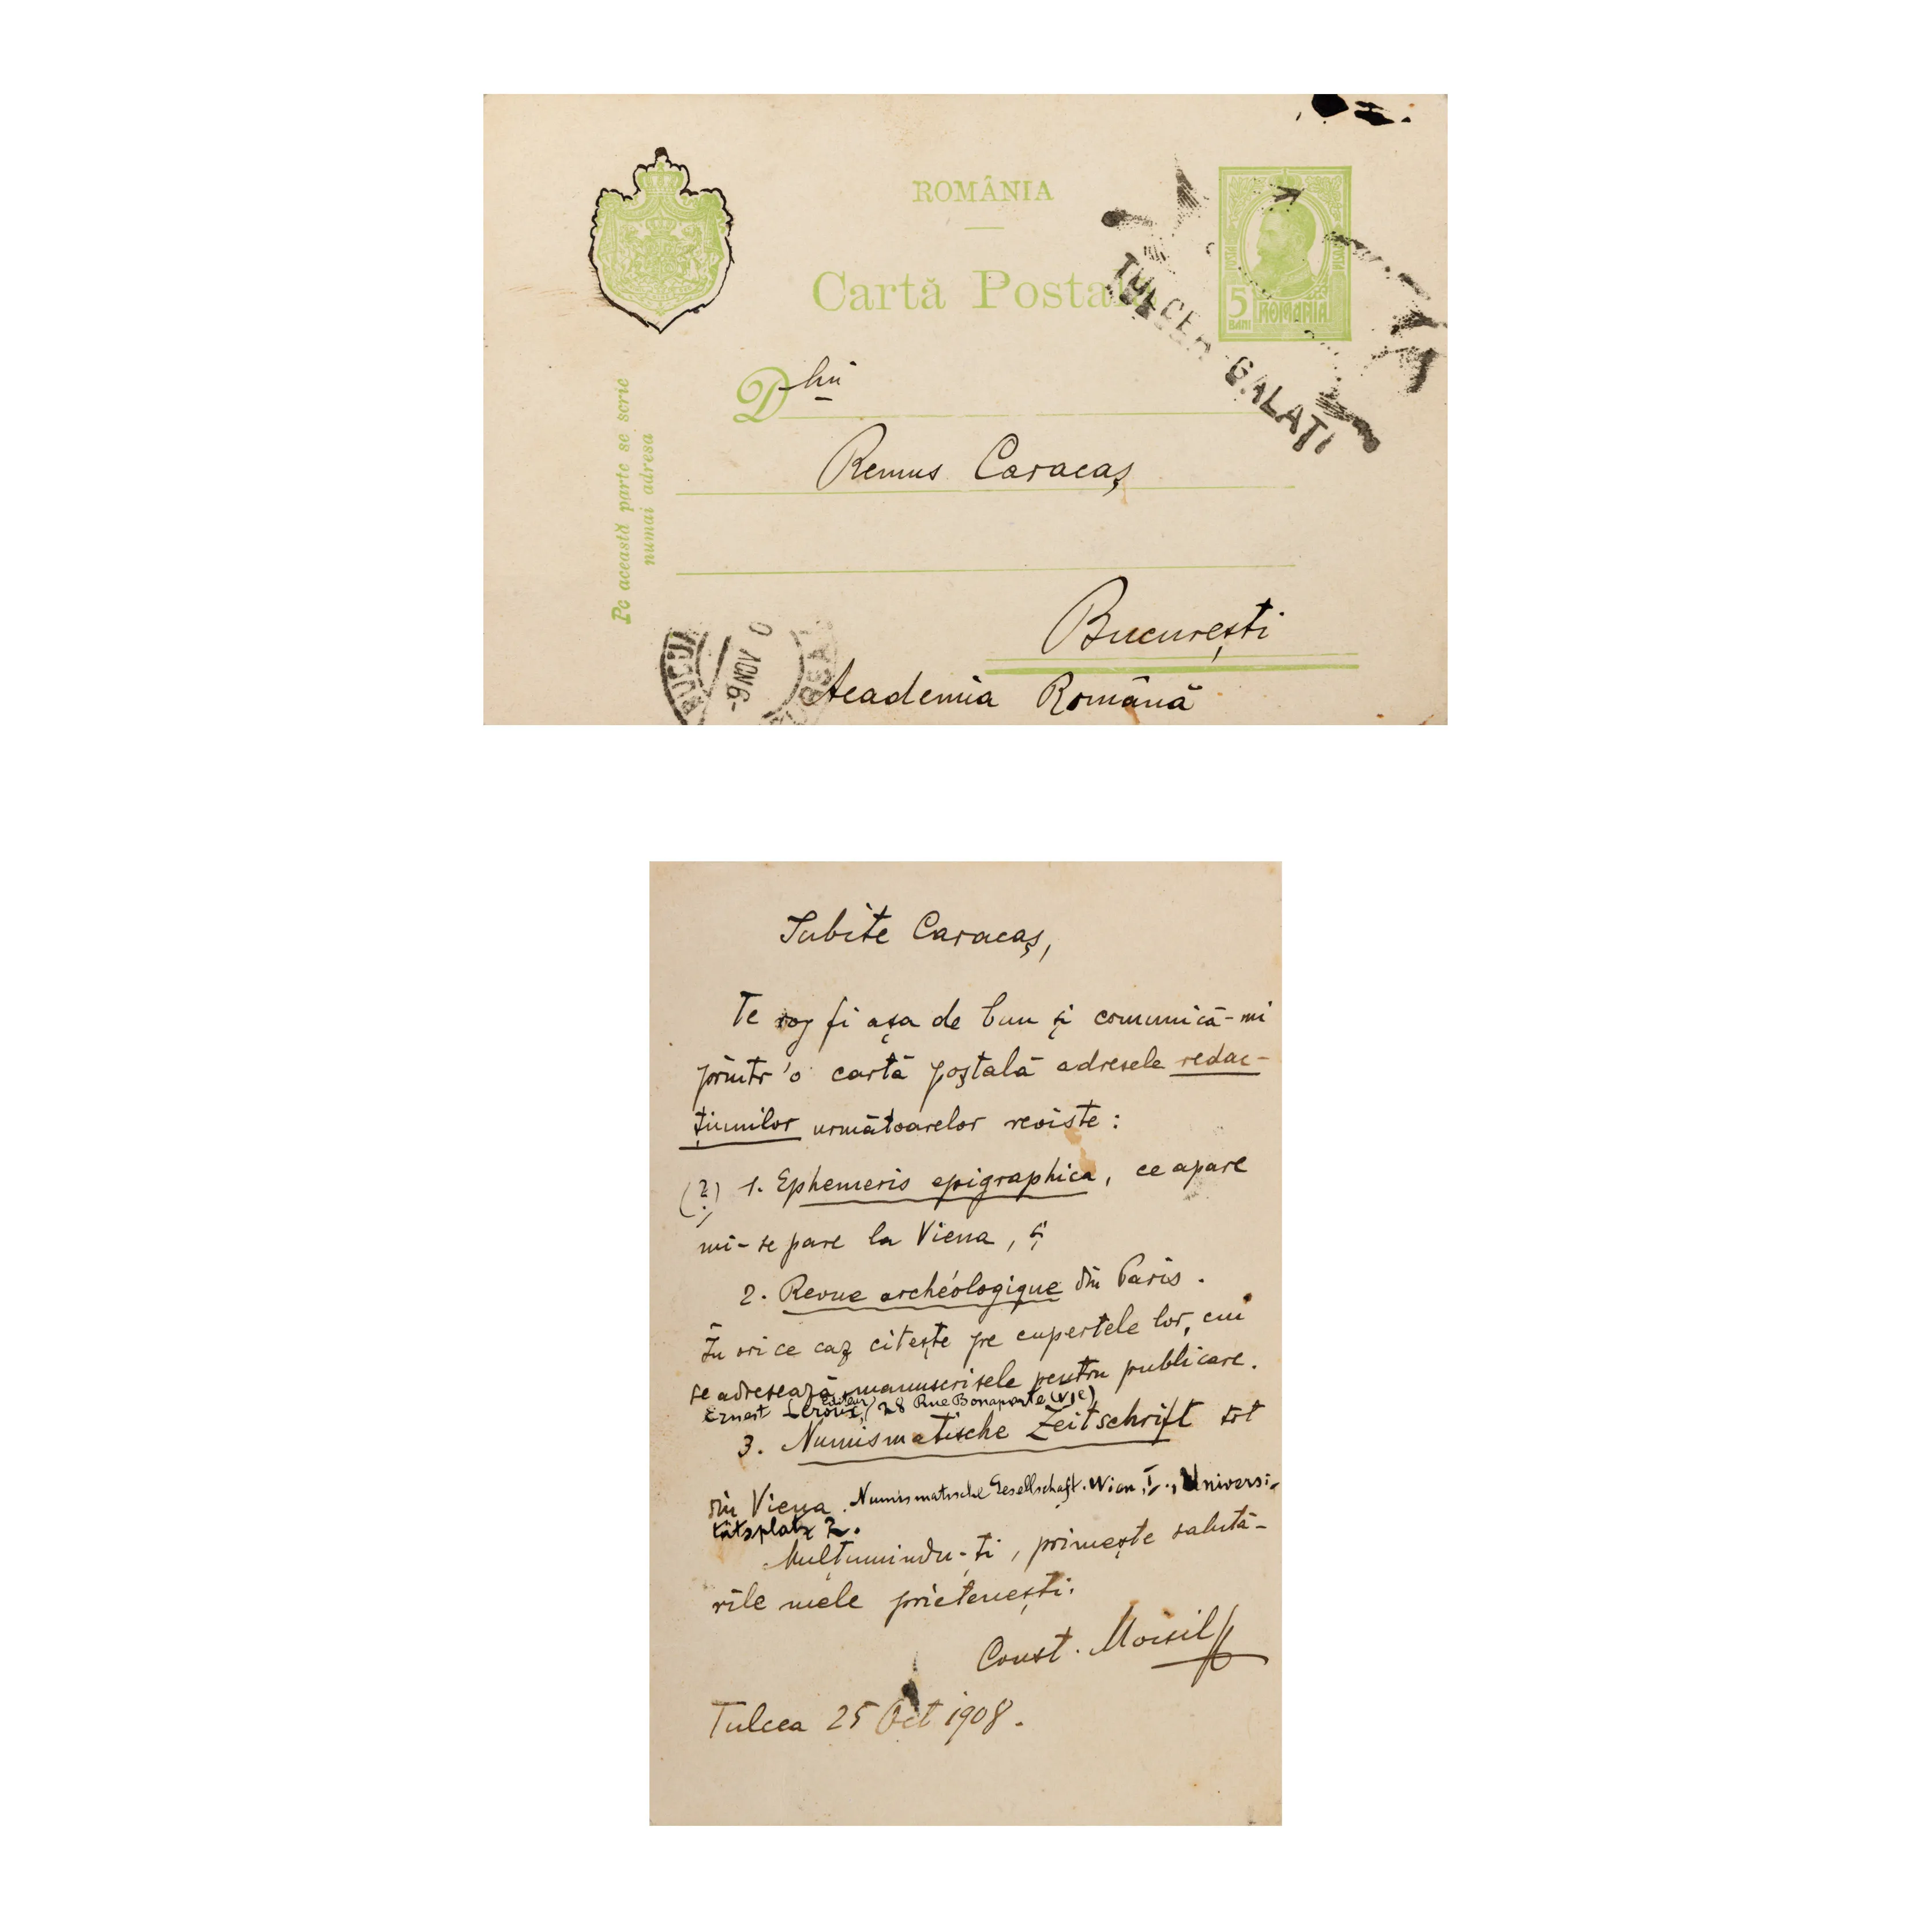 ROMÂNIA
Cartă Postală
TULCEA-GALAȚI
POSTA
5
BANI
ROMANIA
Pe această parte se scrie
numai adresa
Dlui
Remus Caracaș
București
Academia Română
-9 NOV 0
Iubite Caracaș,
Te rog fi așa de bun și comunică-mi
printr'o cartă poștală adresele redac-
țiunilor următoarelor reviste:
(?) 1. Ephemeris epigraphica, ce apare
mi-se pare la Viena, și
2. Revue archéologique din Paris.
În orice caz citește pe cupertele lor, cui
se adresează manuscrisele pentru publicare.
Ernest Leroux, (éditeur) 28 Rue Bonaparte (VIe)
3. Numismatische Zeitschrift tot
din Viena. Numismatische Gesellschaft. Wien, I., Universi-
tätsplatz 2.
Mulțumindu-ți, primește salută-
rile mele prietenești.
Const. Moisil
Tulcea 25 Oct 1908.